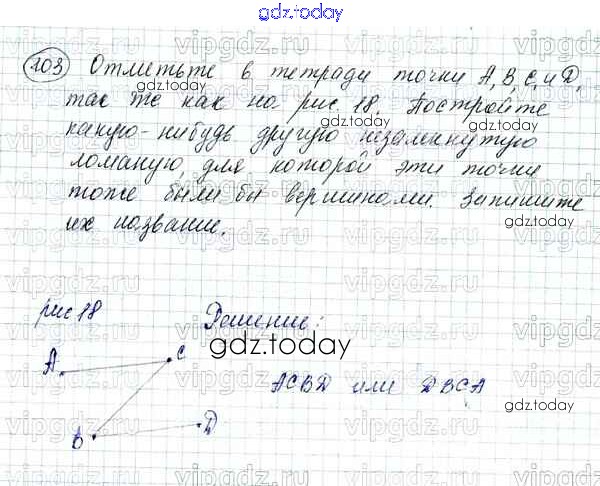 gdz.today
103 Отметьте в тетради точки A, B, C, и D,
так же как на рис 18. Постройте
какую-нибудь другую незамкнутую
ломаную, для которой эти точки
тоже были бы вершинами. Запишите
их название.
рис 18 Решение:
gdz.today
A C
ACBD или DBCA
B D
vipgdz.ru